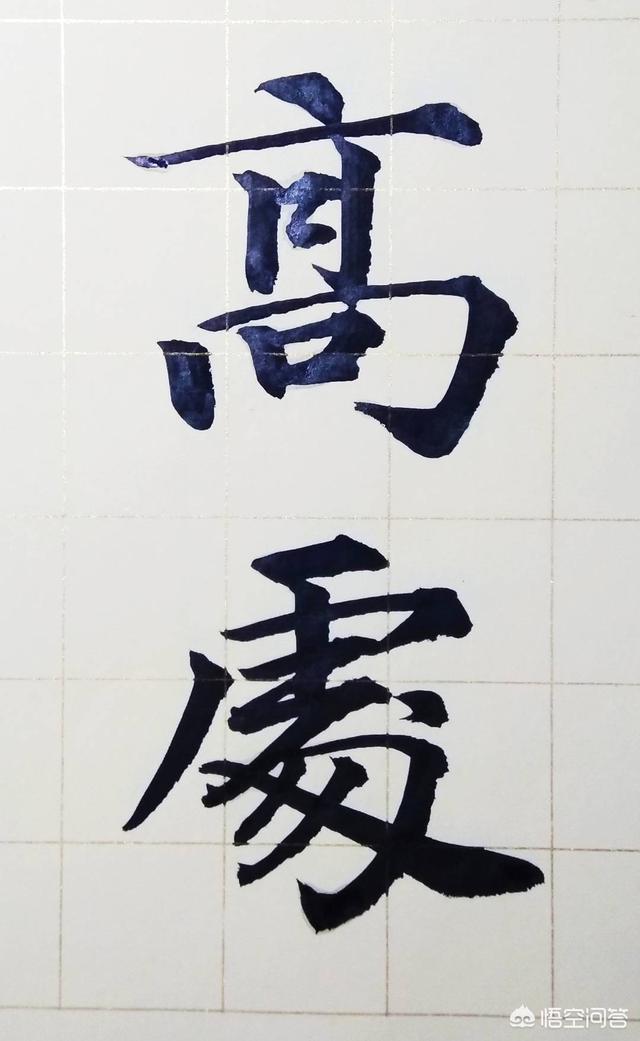 髙
處
悟空问答